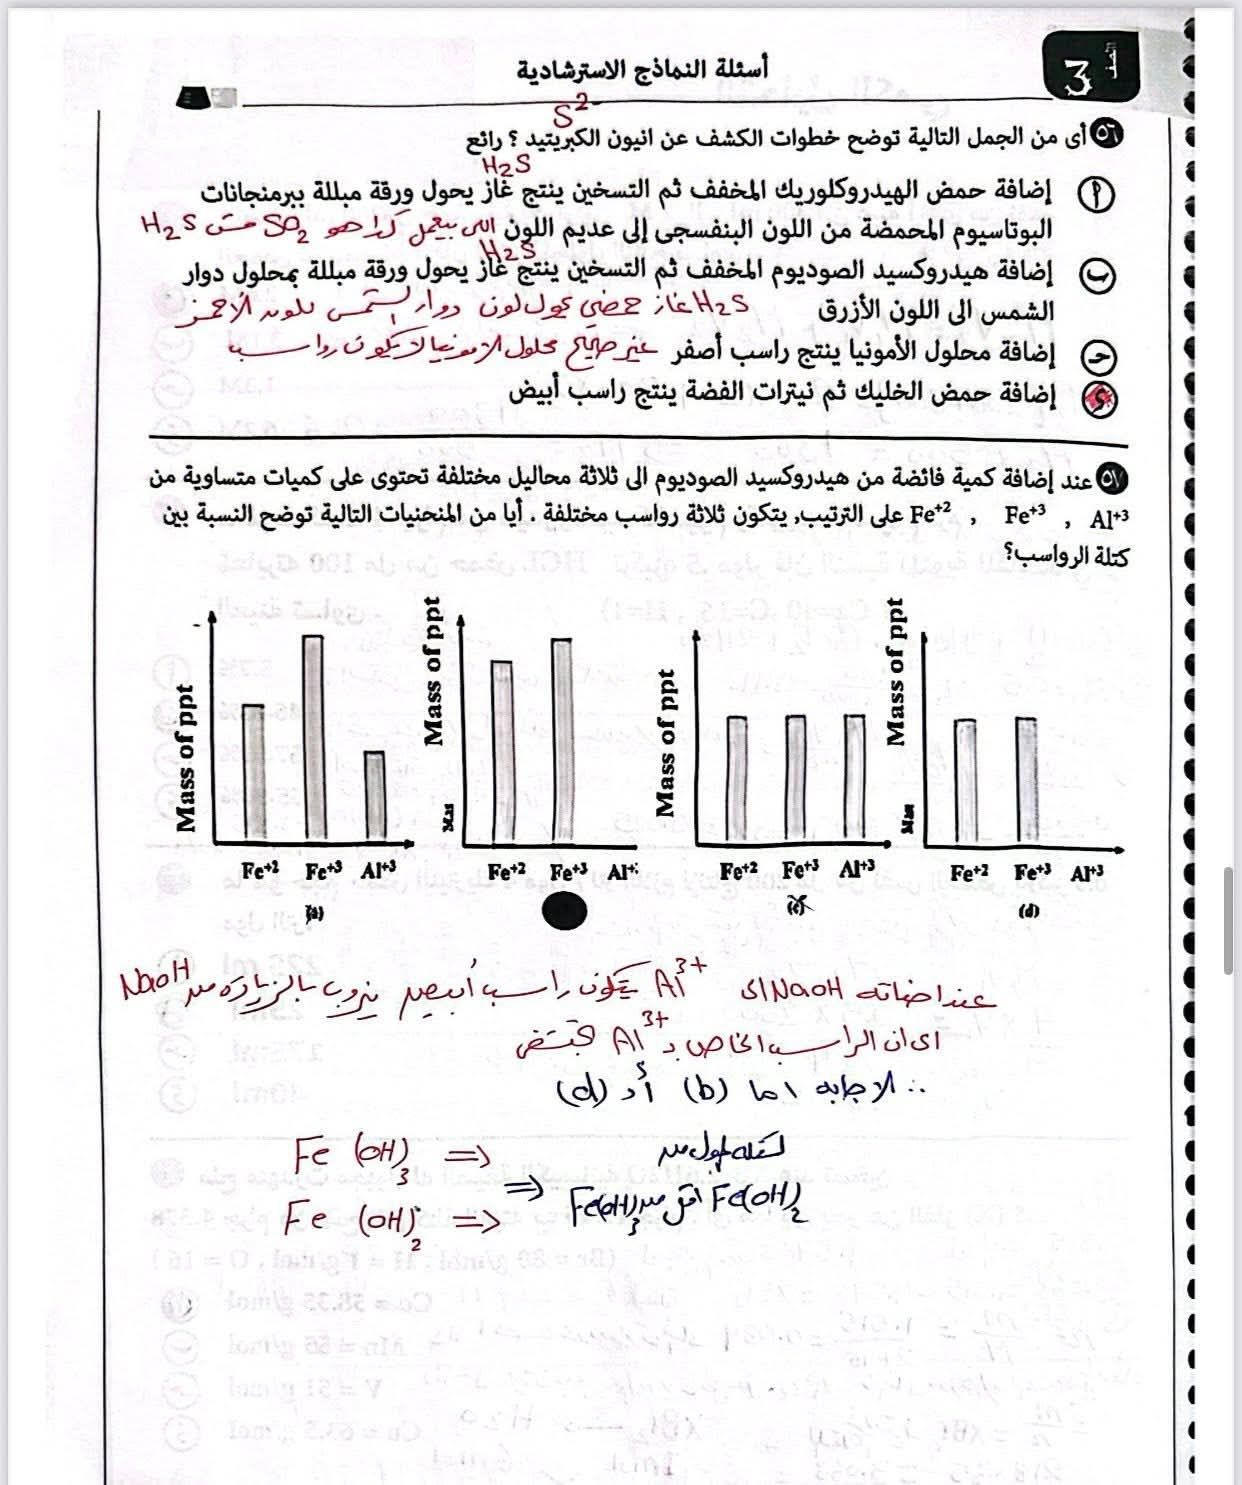 الفصل 3
أسئلة النماذج الاسترشادية
S²⁻
٥٦ أى من الجمل التالية توضح خطوات الكشف عن انيون الكبريتيد ؟ رائع
H₂S
أ إضافة حمض الهيدروكلوريك المخفف ثم التسخين ينتج غاز يحول ورقة مبللة ببرمنجانات
البوتاسيوم المحمضة من اللون البنفسجى إلى عديم اللون اللى بيعمل كدا هو SO₂ مش H₂S
H₂S
ب إضافة هيدروكسيد الصوديوم المخفف ثم التسخين ينتج غاز يحول ورقة مبللة بمحلول دوار
الشمس الى اللون الأزرق H₂S غاز حمضي يحول لون دوار الشمس للون الاحمر
جـ إضافة محلول الأمونيا ينتج راسب أصفر غير صحيح محلول الامونيا لا يكون رواسب
د إضافة حمض الخليك ثم نيترات الفضة ينتج راسب أبيض
٥٧ عند إضافة كمية فائضة من هيدروكسيد الصوديوم الى ثلاثة محاليل مختلفة تحتوى على كميات متساوية من
Al⁺³ , Fe⁺³ , Fe⁺² على الترتيب, يتكون ثلاثة رواسب مختلفة . أيا من المنحنيات التالية توضح النسبة بين
كتلة الرواسب؟
Mass of ppt
Fe⁺² Fe⁺³ Al⁺³
(a)
Mass of ppt
Mas
Fe⁺² Fe⁺³ Al⁺³
Mass of ppt
Fe⁺² Fe⁺³ Al⁺³
(c)
Mass of ppt
Mass
Fe⁺² Fe⁺³ Al⁺³
(d)
عند اضافة NaOH الى Al³⁺ يتكون راسب أبيض يذوب بالزيادة من NaOH
اى ان الراسب الخاص بـ Al³⁺ يختفي
∴ الاجابه اما (b) أو (d)
Fe (OH)₃ ⇒
كتله المول من
Fe (OH)₂ ⇒
⇒ Fe(OH)₂ اقل من Fe(OH)₃